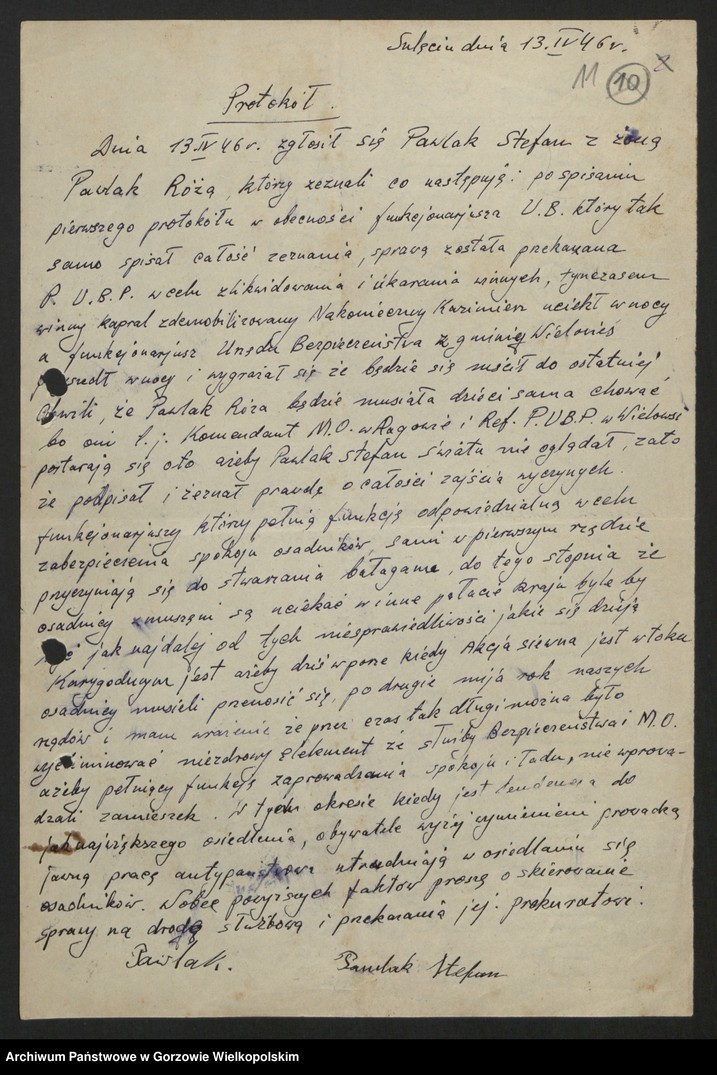 Sulęcin dnia 13.IV 46 r.
11 10
Protokół.
Dnia 13 IV 46 r. zgłosił się Pawlak Stefan z żoną
Pawlak Różą, którzy zeznali co następują: po spisaniu
pierwszego protokółu w obecności funkcjonarjusza U.B. który tak
samo spisał całość zeznania, sprawa została przekazana
P.U.B.P. w celu zlikwidowania i ukarania winnych, tymczasem
winny kapral zdemobilizowany Nakonieczny Kazimierz uciekł w nocy
a funkcjonarjusz Urzędu Bezpieczeństwa z gminy Wielowieś
w nocy i wygrażał się że będzie się mścił do ostatniej
chwili, że Pawlak Róża będzie musiała dzieci sama chować
bo oni t.j. Komendant M.O. w Rogowie i Ref. P.U.B.P. w Wielowsi
postarają się oto ażeby Pawlak Stefan świata nie oglądał, zato
że podpisał i zeznał prawdę o całości zajścia wyczynych.
funkcjonarjuszy którzy pełnią funkcją odpowiedzialną w celu
zabezpieczenia spokoju osadników, sami w pierwszym rzędzie
przyczyniają się do stwarzania bałaganu, do tego stopnia że
osadnicy zmuszeni są uciekać w inne połacie kraju byle by
być jak najdalej od tych niesprawiedliwości jakie się dzieją
Karygodnym jest ażeby dziś w porze kiedy Akcja siewna jest w toku
osadnicy musieli przenosić się, po drugie mija rok naszych
rządów i mam wrażenie że przez czas tak długi można było
wyeliminować niezdrowy Element ze służby Bezpieczeństwa i M.O.
ażeby pełniący funkcją zaprowadzania spokoju i ładu, nie wprowa-
dzali zamieszek. W tym okresie kiedy jest tendencja do
jaknajwiększego osiedlenia, obywatele wyżej wymienieni prowadzą
jawną pracę antypaństwową utrudniają w osiedlaniu się
osadników. Wobec powyższych faktów proszę o skierowanie
sprawy na drogą służbową i przekazania jej prokuratowi.
Pawlak. Pawlak Stefan
Archiwum Państwowe w Gorzowie Wielkopolskim